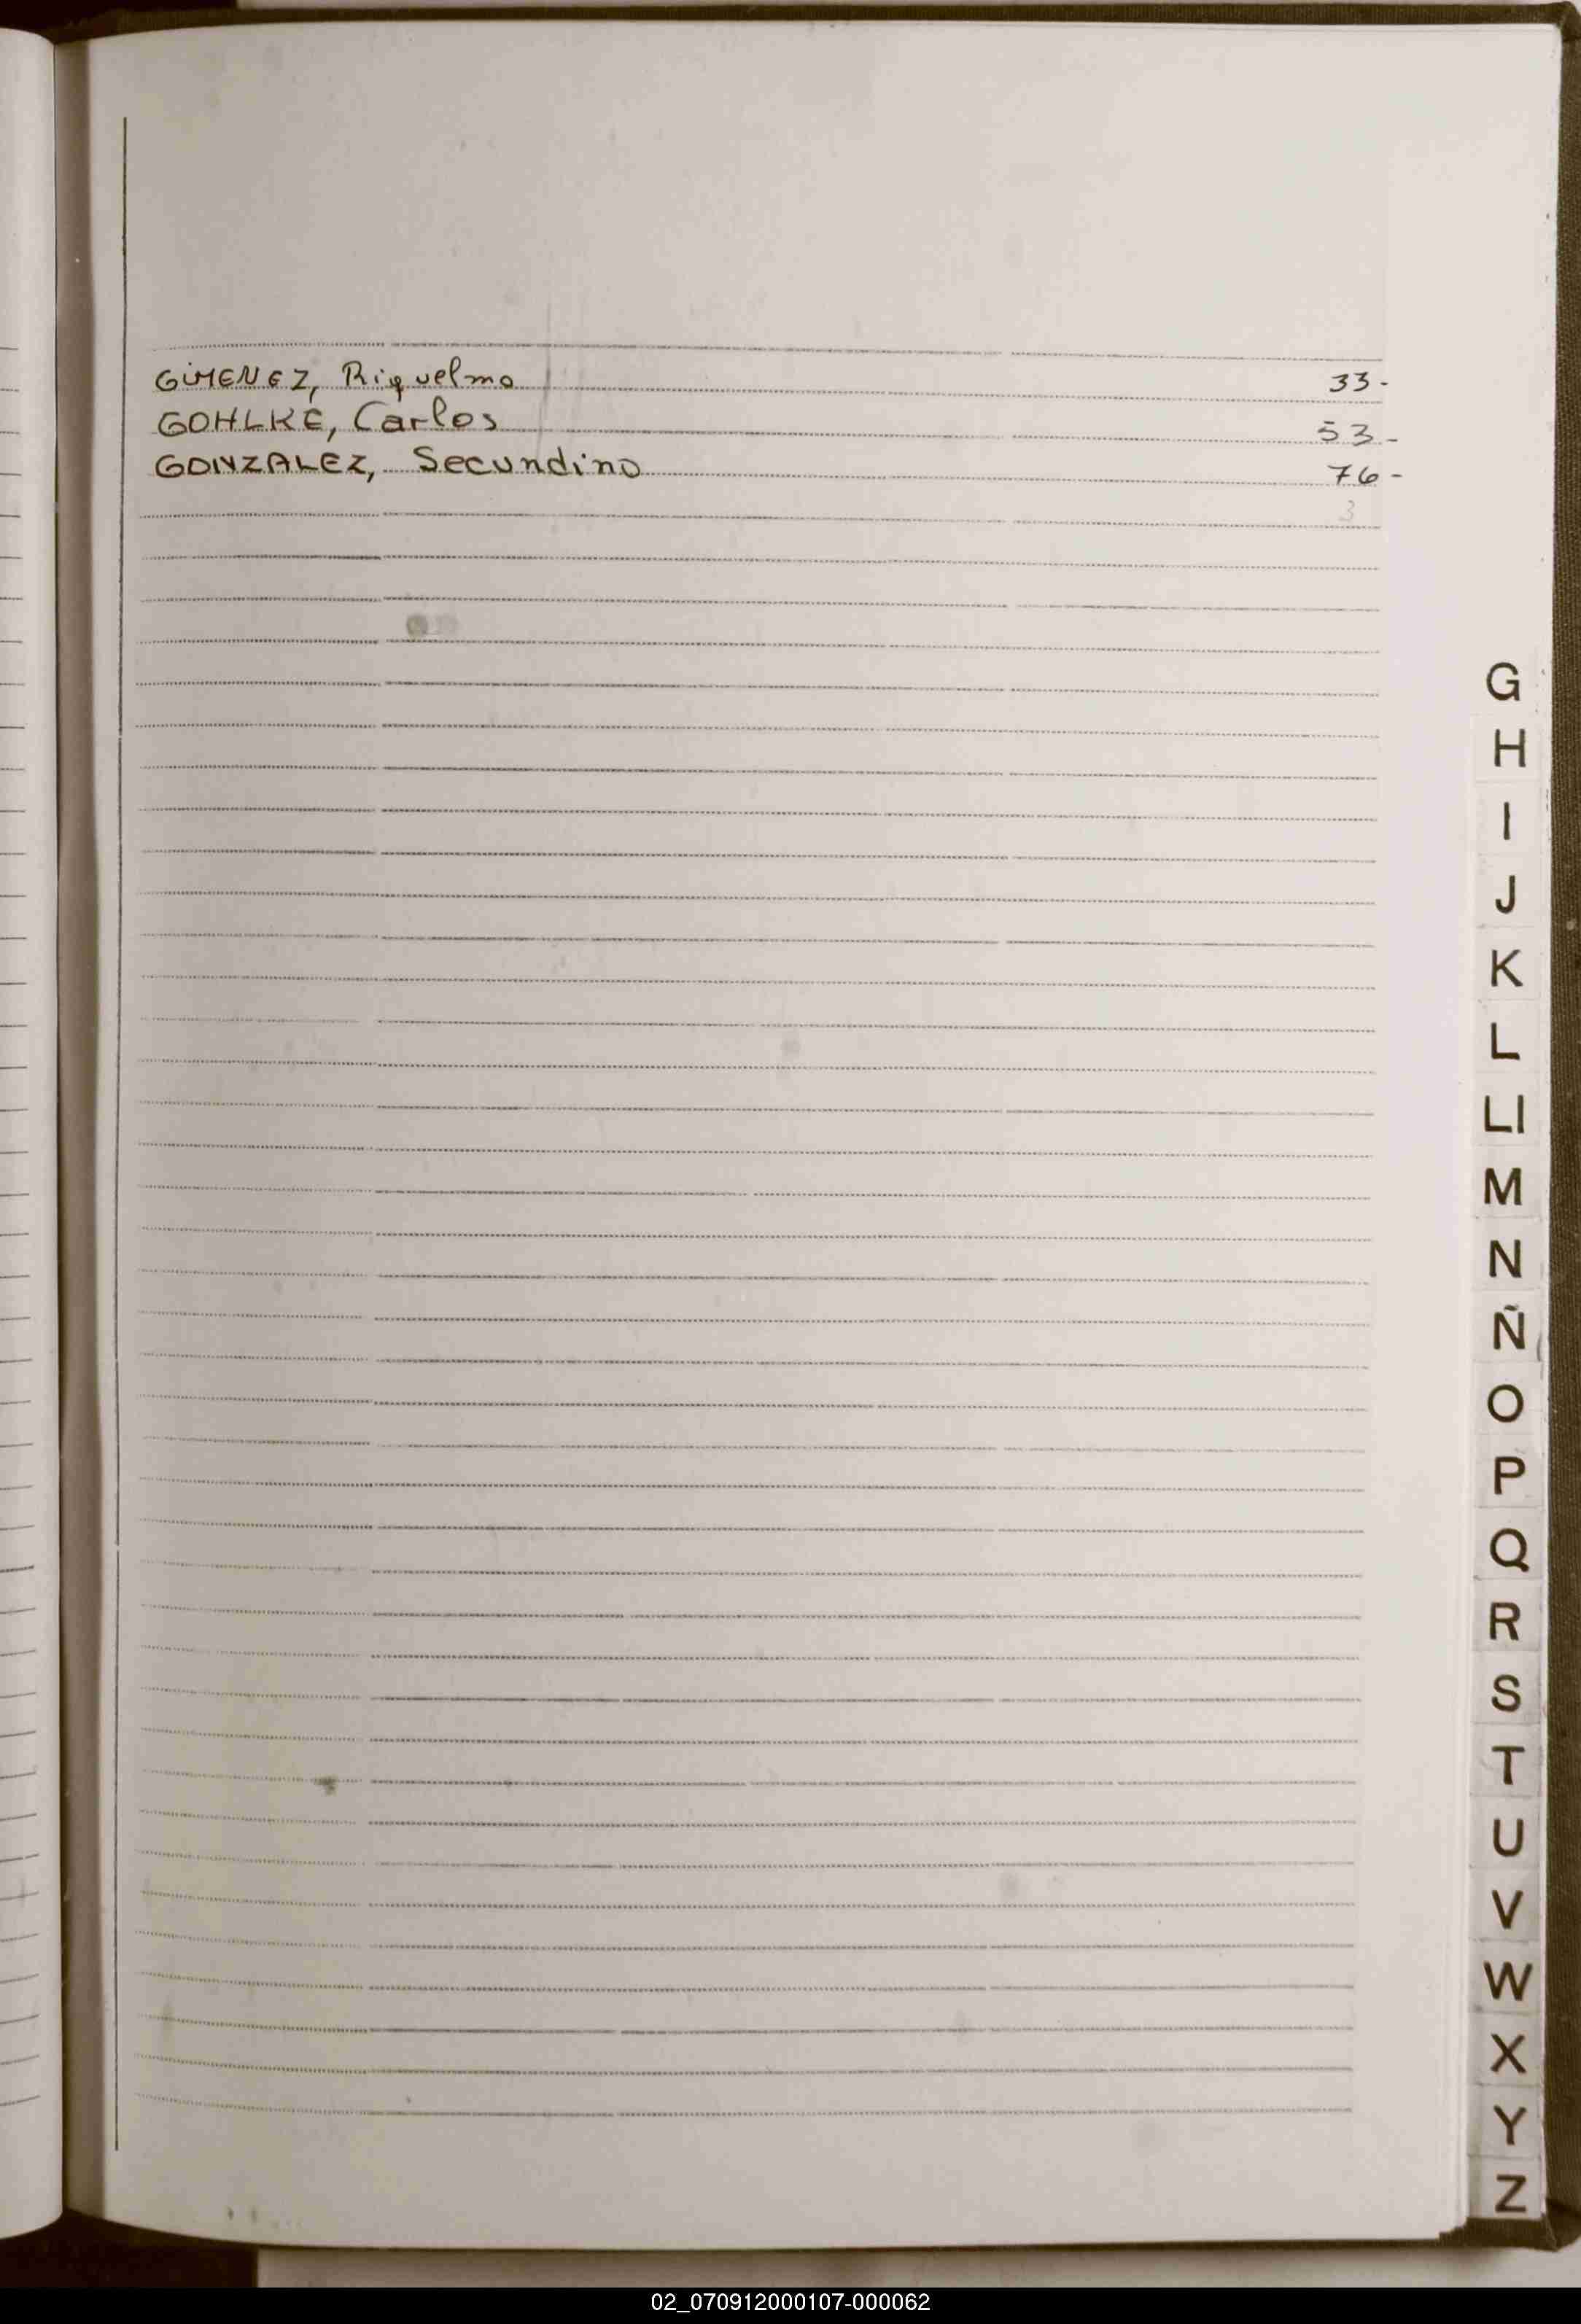 GIMENEZ, Riquelmo 33-
GOHLKE, Carlos 53-
GONZALEZ, Secundino 76-
3
G
H
I
J
K
L
Ll
M
N
Ñ
O
P
Q
R
S
T
U
V
W
X
Y
Z
02_070912000107-000062